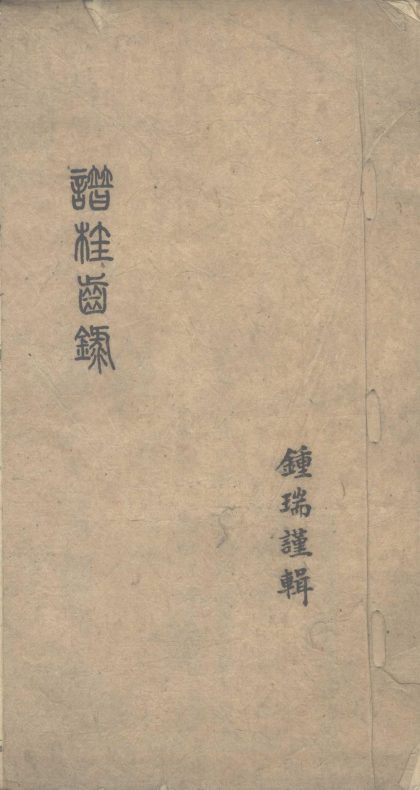 鍾瑞謹輯
譜柱齒錄